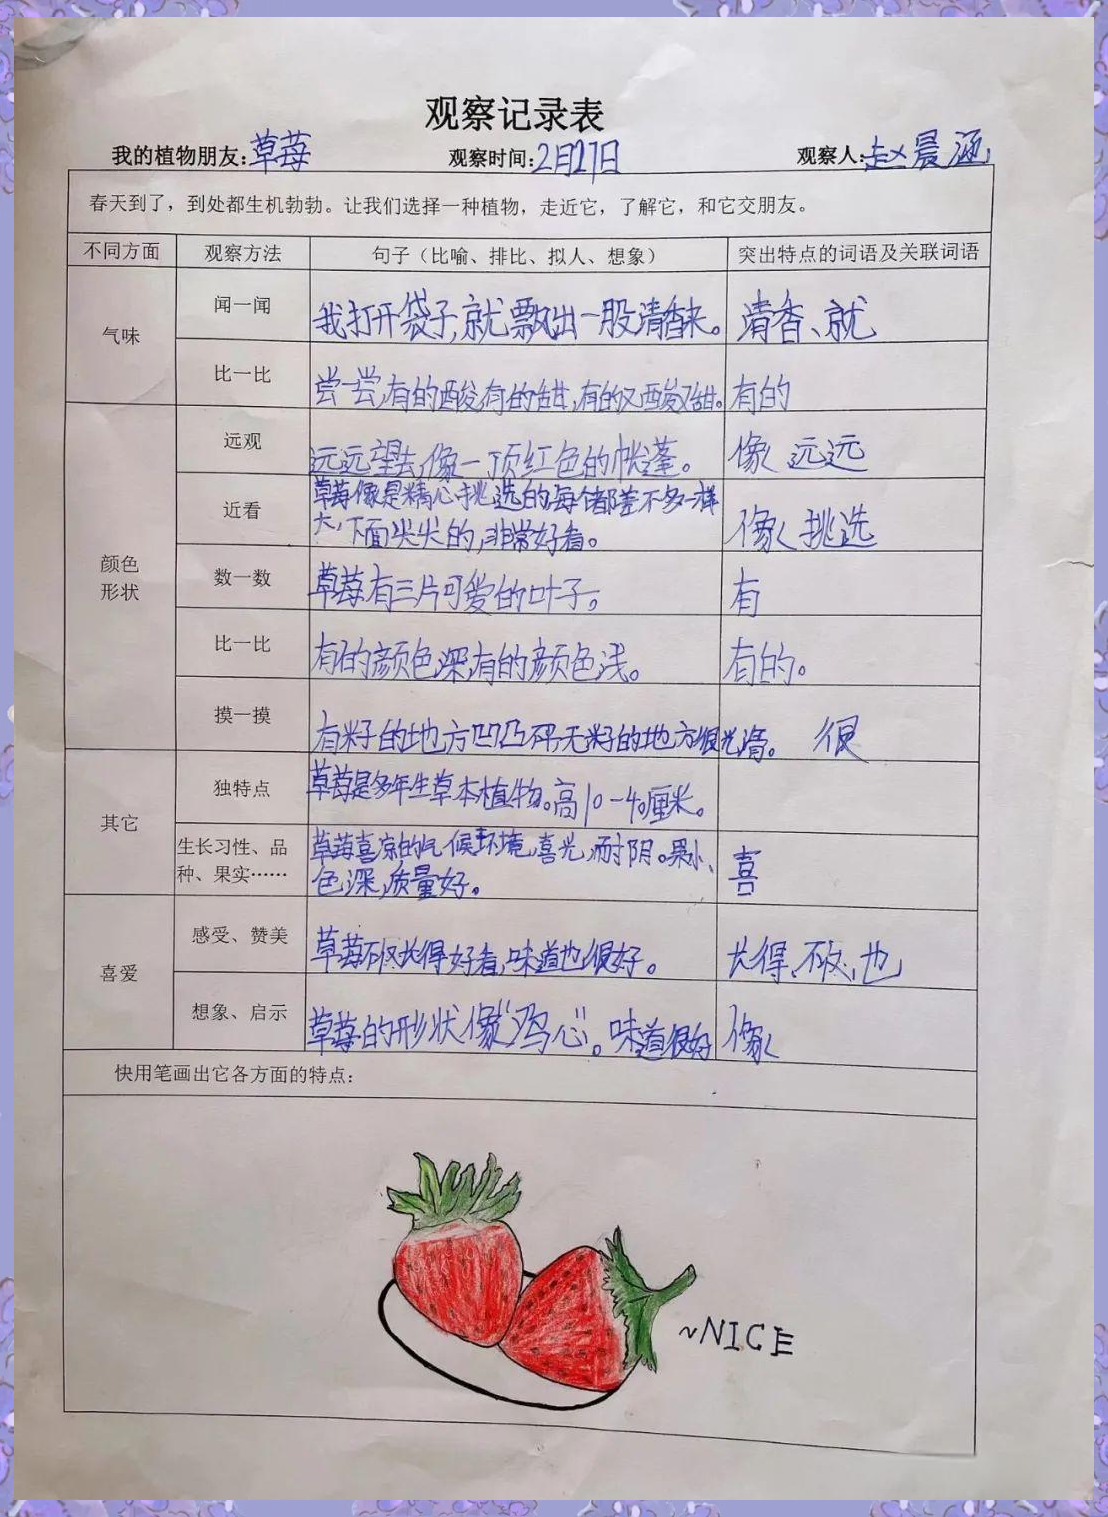 观察记录表
我的植物朋友:草莓 观察时间:2月27日 观察人:赵晨涵
春天到了，到处都生机勃勃。让我们选择一种植物，走近它，了解它，和它交朋友。
不同方面 观察方法 句子（比喻、排比、拟人、想象） 突出特点的词语及关联词语
气味
闻一闻 我打开袋子,就飘出一股清香来。 清香、就
比一比 尝一尝,有的酸,有的甜,有的又酸又甜。 有的
颜色
形状
远观 远远望去,像一顶红色的帐蓬。 像 远远
近看 草莓像是精心挑选的,每个都差不多一样
大,下面尖尖的,非常好看。 像 挑选
数一数 草莓有三片可爱的叶子。 有
比一比 有的颜色深,有的颜色浅。 有的。
摸一摸 有籽的地方凹凸不平,无籽的地方很光滑。 很
其它
独特点 草莓是多年生草本植物。高10-40厘米。
生长习性、品
种、果实…… 草莓喜凉的气候环境,喜光,耐阴。果小、
色深,质量好。 喜
喜爱
感受、赞美 草莓不仅长得好看,味道也很好。 长得、不仅、也
想象、启示 草莓的形状像“鸡心”。味道很好 像
快用笔画出它各方面的特点：
~NICE